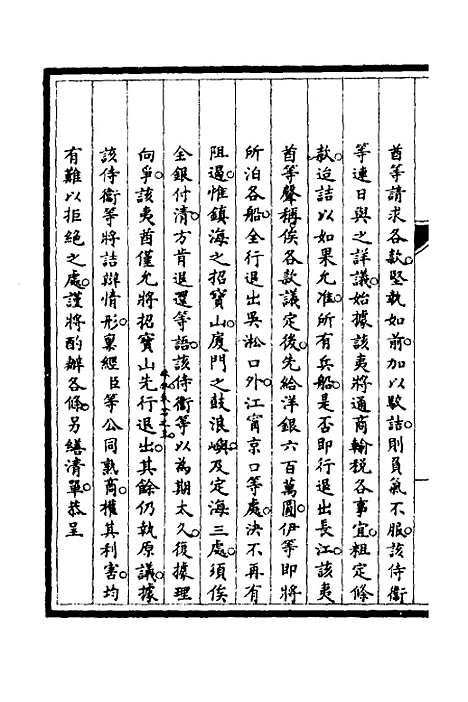 酋等請求各款堅執如前加以駁詰則負氣不服該侍衞
等連日與之詳議始據該夷將通商輸税各事宜粗定條
款迨詰以如果允准所有兵船是否即行退出長江該夷
酋等聲稱俟各款議定後先給洋銀六百萬圓伊等即將
所泊各船全行退出吳淞口外江甯京口等處決不再有
阻遏惟鎮海之招寶山厦門之鼓浪嶼及定海三處須俟
全銀付清方肯退還等語該侍衞等以為期太久復據理
向爭該夷酋僅允將招寶山先行退出其餘仍執原議據
該侍衞等將詰辯情形稟經臣等公同熟商權其利害均
有難以拒絕之處謹將酌辦各條另繕清單恭呈